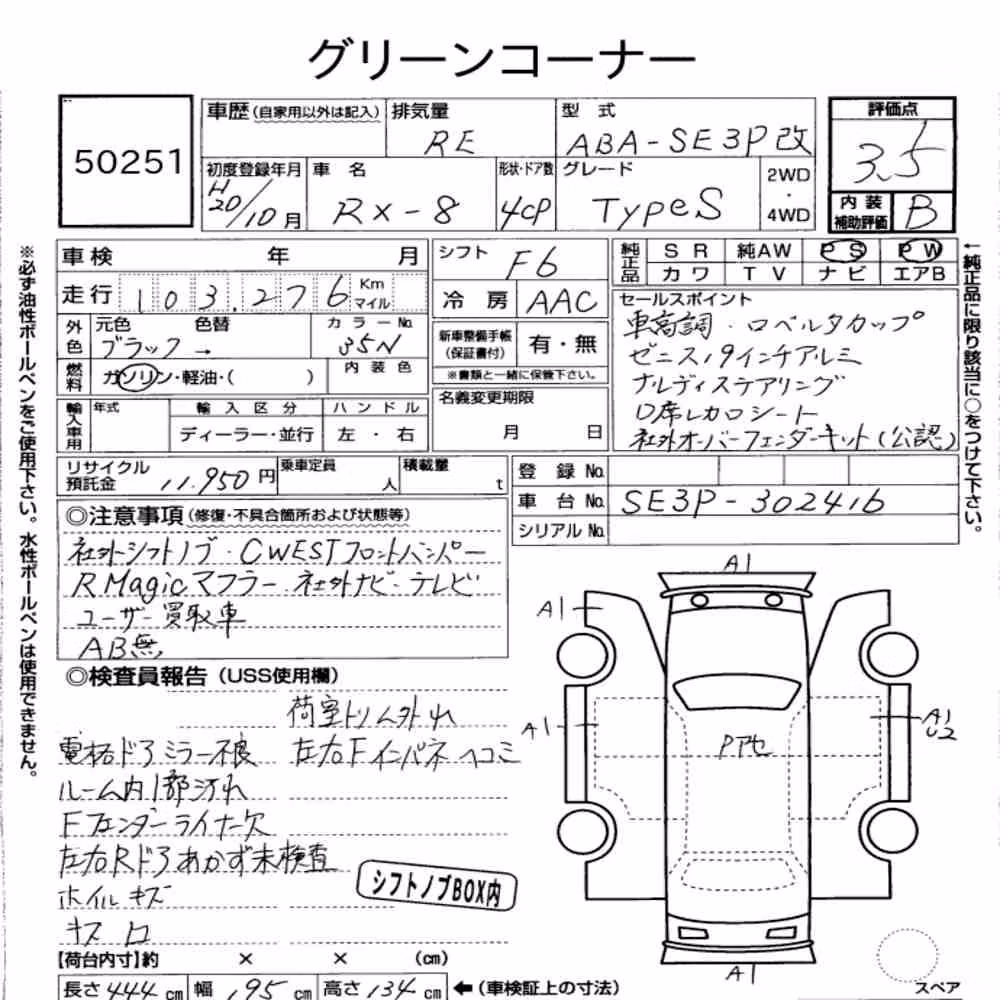 グリーンコーナー
50251
車歴(自家用以外は記入) 排気量 RE
型式 ABA-SE3P改
評価点 3.5
初度登録年月 H20/10月
車名 RX-8
形状・ドア数 4CP
グレード TypeS
2WD・4WD
内装補助評価 B
車検 年 月
シフト F6
純正品 SR 純AW PS PW
カワ TV ナビ エアB
走行 103,276 Km マイル
冷房 AAC
外色 元色 色替 カラーNo.
ブラック → 35N
新車整備手帳(保証書付) 有・無
※書類と一緒に保管下さい。
燃料 ガソリン・軽油・( ) 内装色
名義変更期限 月 日
輸入車用 年式 輸入区分 ハンドル
ディーラー・並行 左・右
セールスポイント
車高調・ロベルタカップ
ゼニス19インチアルミ
ナルディステアリング
D席レカロシート
社外オーバーフェンダーキット(公認)
リサイクル預託金 11,950円
乗車定員 人
積載量 t
登録No.
車台No. SE3P-302416
シリアルNo.
◎注意事項(修復・不具合箇所および状態等)
社外シフトノブ・CWESTフロントバンパー
R Magicマフラー・社外ナビ・テレビ
ユーザー買取車
AB無
◎検査員報告(USS使用欄)
荷室トリム外れ
電格ドアミラー不良 左右Fインパネヘコミ
ルーム内1部汚れ
Fフェンダーライナー欠
左右Rドアあかず未検査
ホイルキズ
シフトノブBOX内
【荷台内寸】約 × × (cm)
長さ 444cm 幅 195cm 高さ 134cm ←(車検証上の寸法)
A1
A1
A1
A1
U2
Pアセ
A1
スペア
※必ず油性ボールペンをご使用下さい。水性ボールペンは使用できません。
←純正品に限り該当に○をつけて下さい。